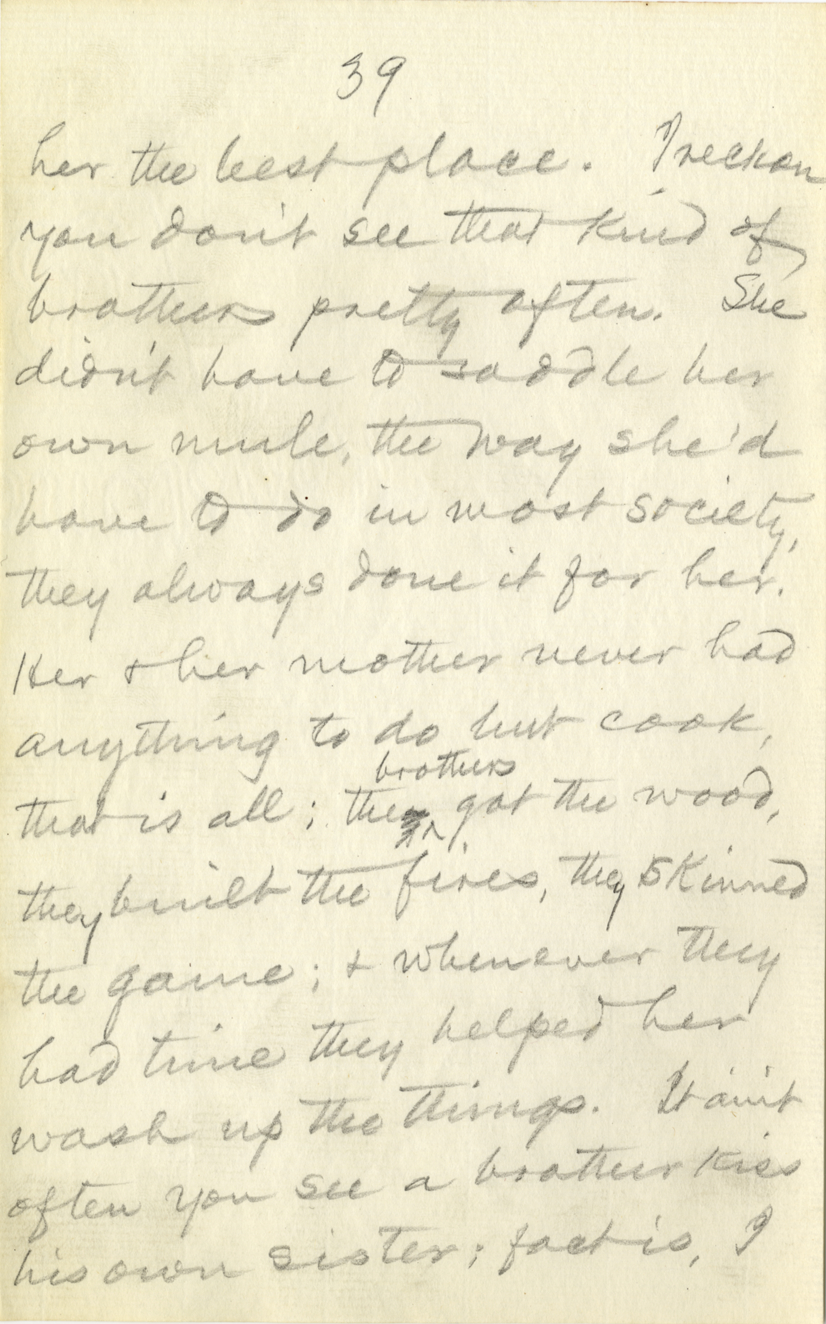 39
her the best place. I reckon
you don't see that kind of
brothers pretty often. She
didn't have to saddle her
own mule, the way she'd
have to do in most society,
they always done it for her.
Her & her mother never had
anything to do but cook,
brothers
that is all; the got the wood,
they built the fires, they skinned
the game; & whenever they
had time they helped her
wash up the things. It ain't
often you see a brother kiss
his own sister; fact is, I